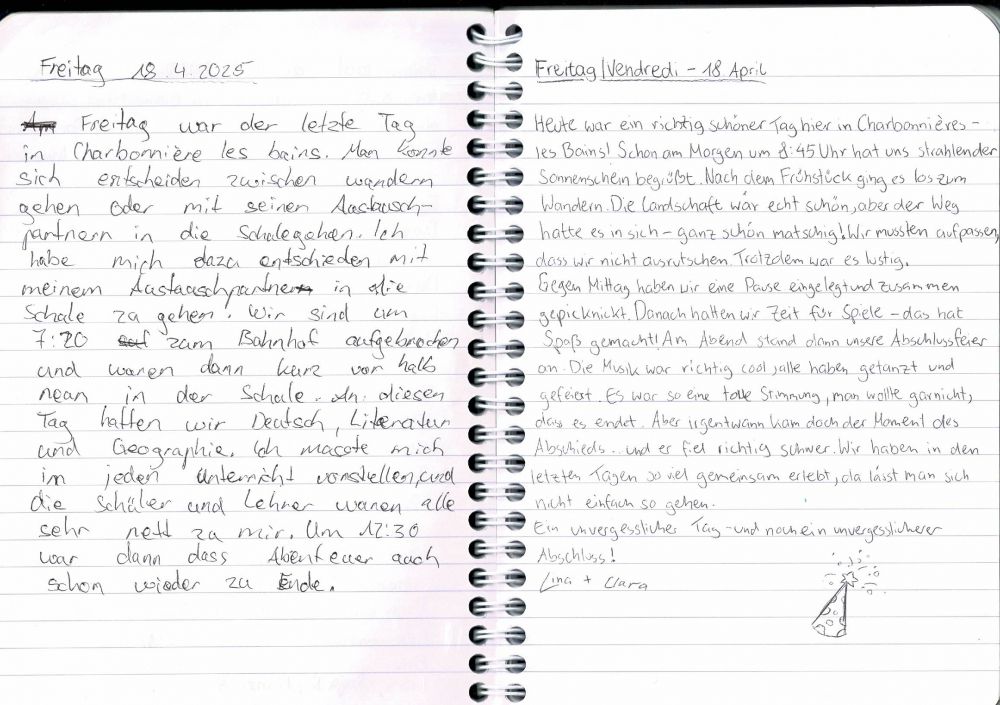 Freitag 18.4.2025
Freitag war der letzte Tag
in Charbonnière les bains. Man konnte
sich entscheiden zwischen wandern
gehen oder mit seinen Austausch-
partnern in die Schule gehen. Ich
habe mich dazu entschieden mit
meinem Austauschpartner in die
Schule zu gehen. Wir sind um
7:20 zum Bahnhof aufgebrochen
und waren dann kurz vor halb
neun in der Schule. An diesen
Tag hatten wir Deutsch, Literatur
und Geographie. Ich musste mich
im jeden Unterricht vorstellen, und
die Schüler und Lehrer waren alle
sehr nett zu mir. Um 12:30
war dann dass Abenteuer auch
schon wieder zu Ende.
Freitag/Vendredi - 18 April
Heute war ein richtig schöner Tag hier in Charbonnières -
les Bains! Schon am Morgen um 8:45 Uhr hat uns strahlender
Sonnenschein begrüßt. Nach dem Frühstück ging es los zum
Wandern. Die Landschaft war echt schön, aber der Weg
hatte es in sich - ganz schön matschig! Wir mussten aufpassen,
dass wir nicht ausrutschen. Trotzdem war es lustig.
Gegen Mittag haben wir eine Pause eingelegt und zusammen
gepicknickt. Danach hatten wir Zeit für Spiele - das hat
Spaß gemacht! Am Abend stand dann unsere Abschlussfeier
an. Die Musik war richtig cool, alle haben getanzt und
gefeiert. Es war so eine tolle Stimmung, man wollte garnicht,
dass es endet. Aber irgentwann kam doch der Moment des
Abschieds... und er fiel richtig schwer. Wir haben in den
letzten Tagen so viel gemeinsam erlebt, da lässt man sich
nicht einfach so gehen.
Ein unvergesslicher Tag - und noch ein unvergesslicherer
Abschluss!
Lina + Clara